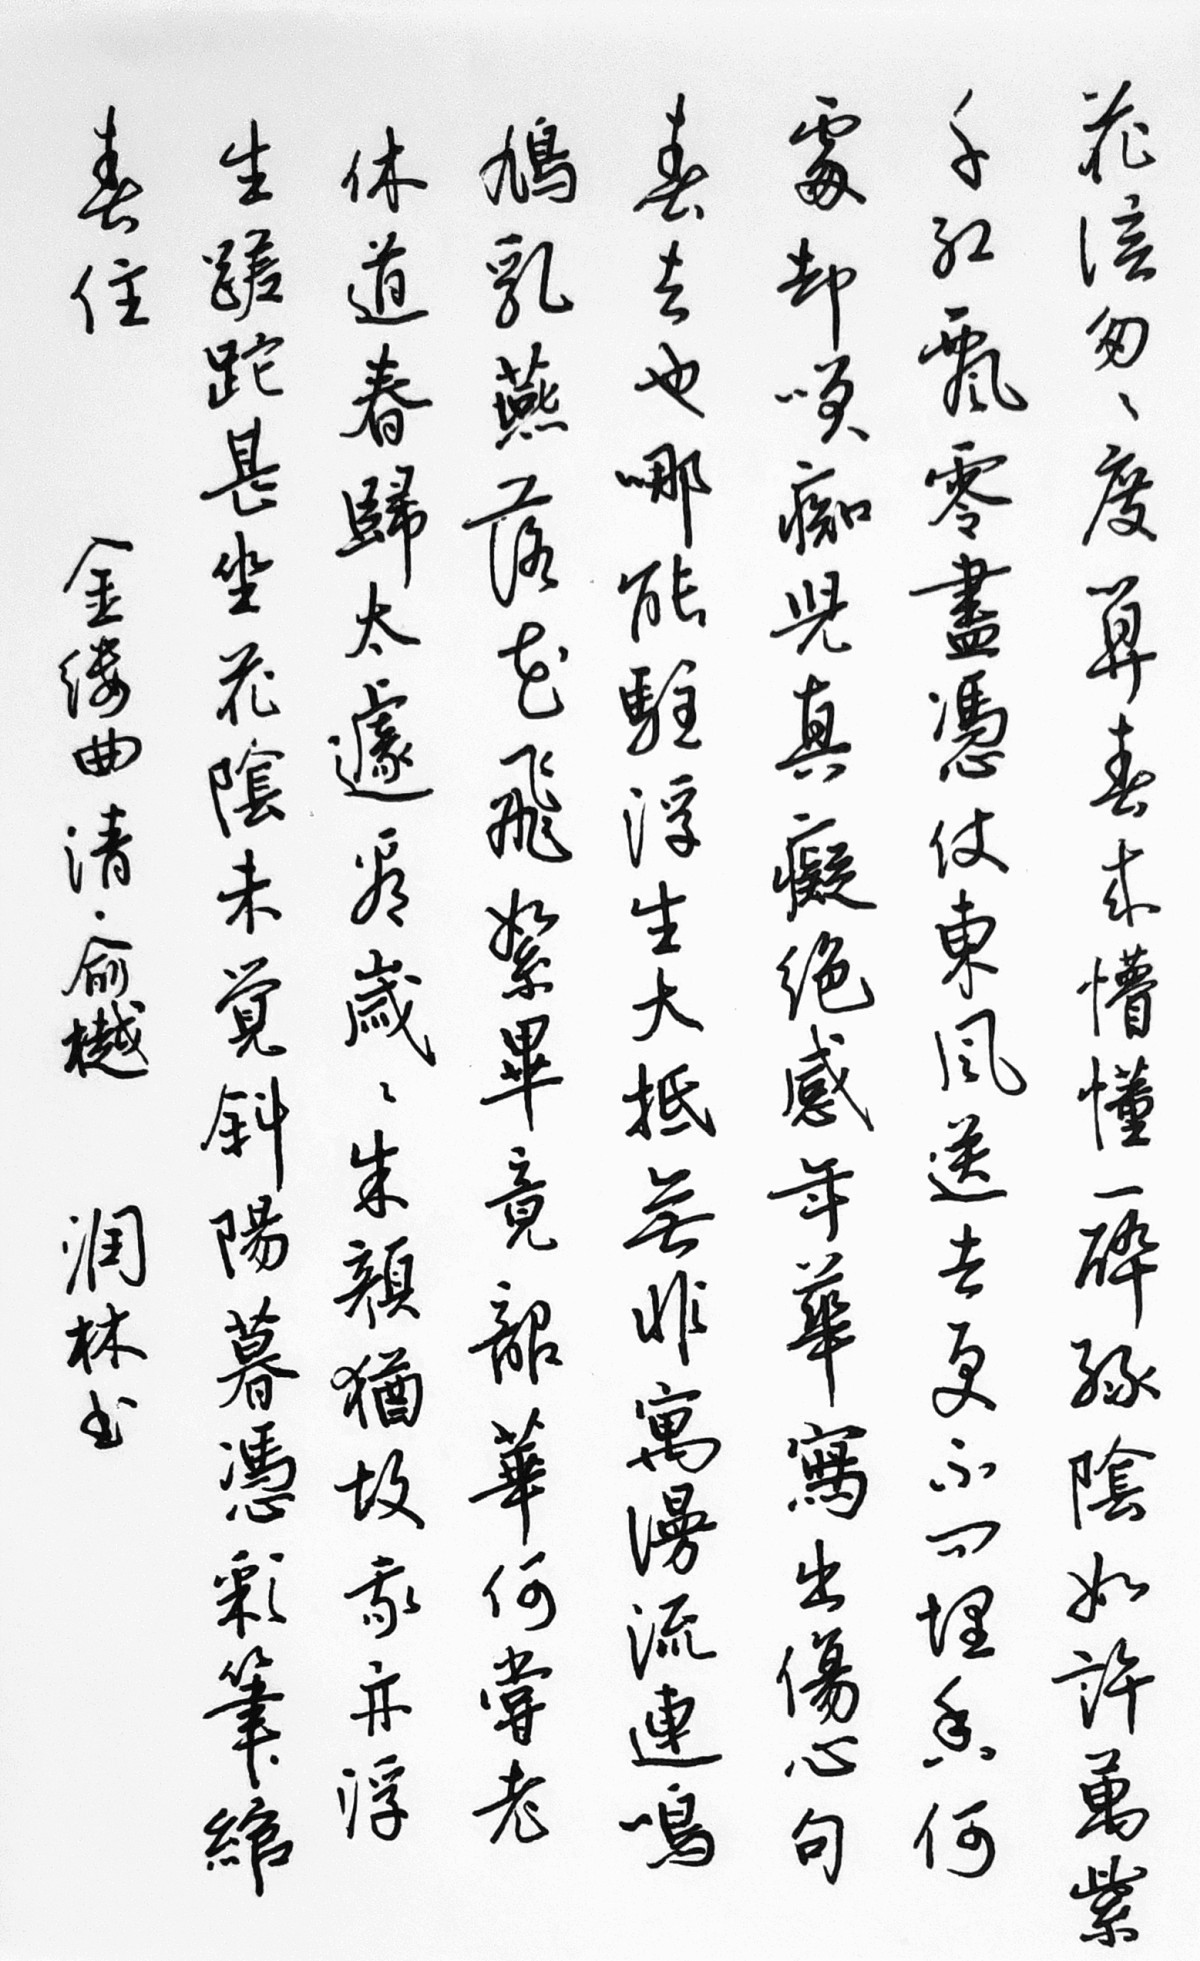 花信匆匆度算春来懵懂一醉緑陰如許萬紫
千红飄零盡憑仗東风送去更不问埋香何
處却笑癡児真癡絕感年華寫出傷心句
春去也哪能駐浮生大抵無非寓漫流連鳴
鳩乳燕落花飛絮畢竟韶華何嘗老
休道春歸太遽看歲歲朱顔猶故我亦浮
生蹉跎甚坐花陰未覺斜陽暮憑彩筆綰
春住
金缕曲清·俞樾
润林书